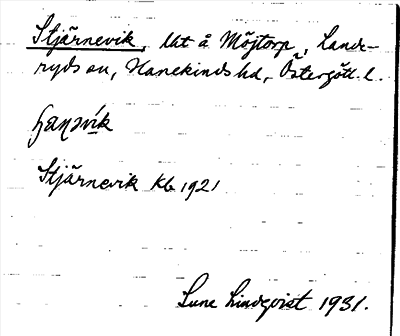 Stjärnevik, lht å Möjtorp, Land-
ryds sn, Hanekinds hd, Östergötl. l.
Stjärnevik Kb 1921
Sune Lindqvist 1931.